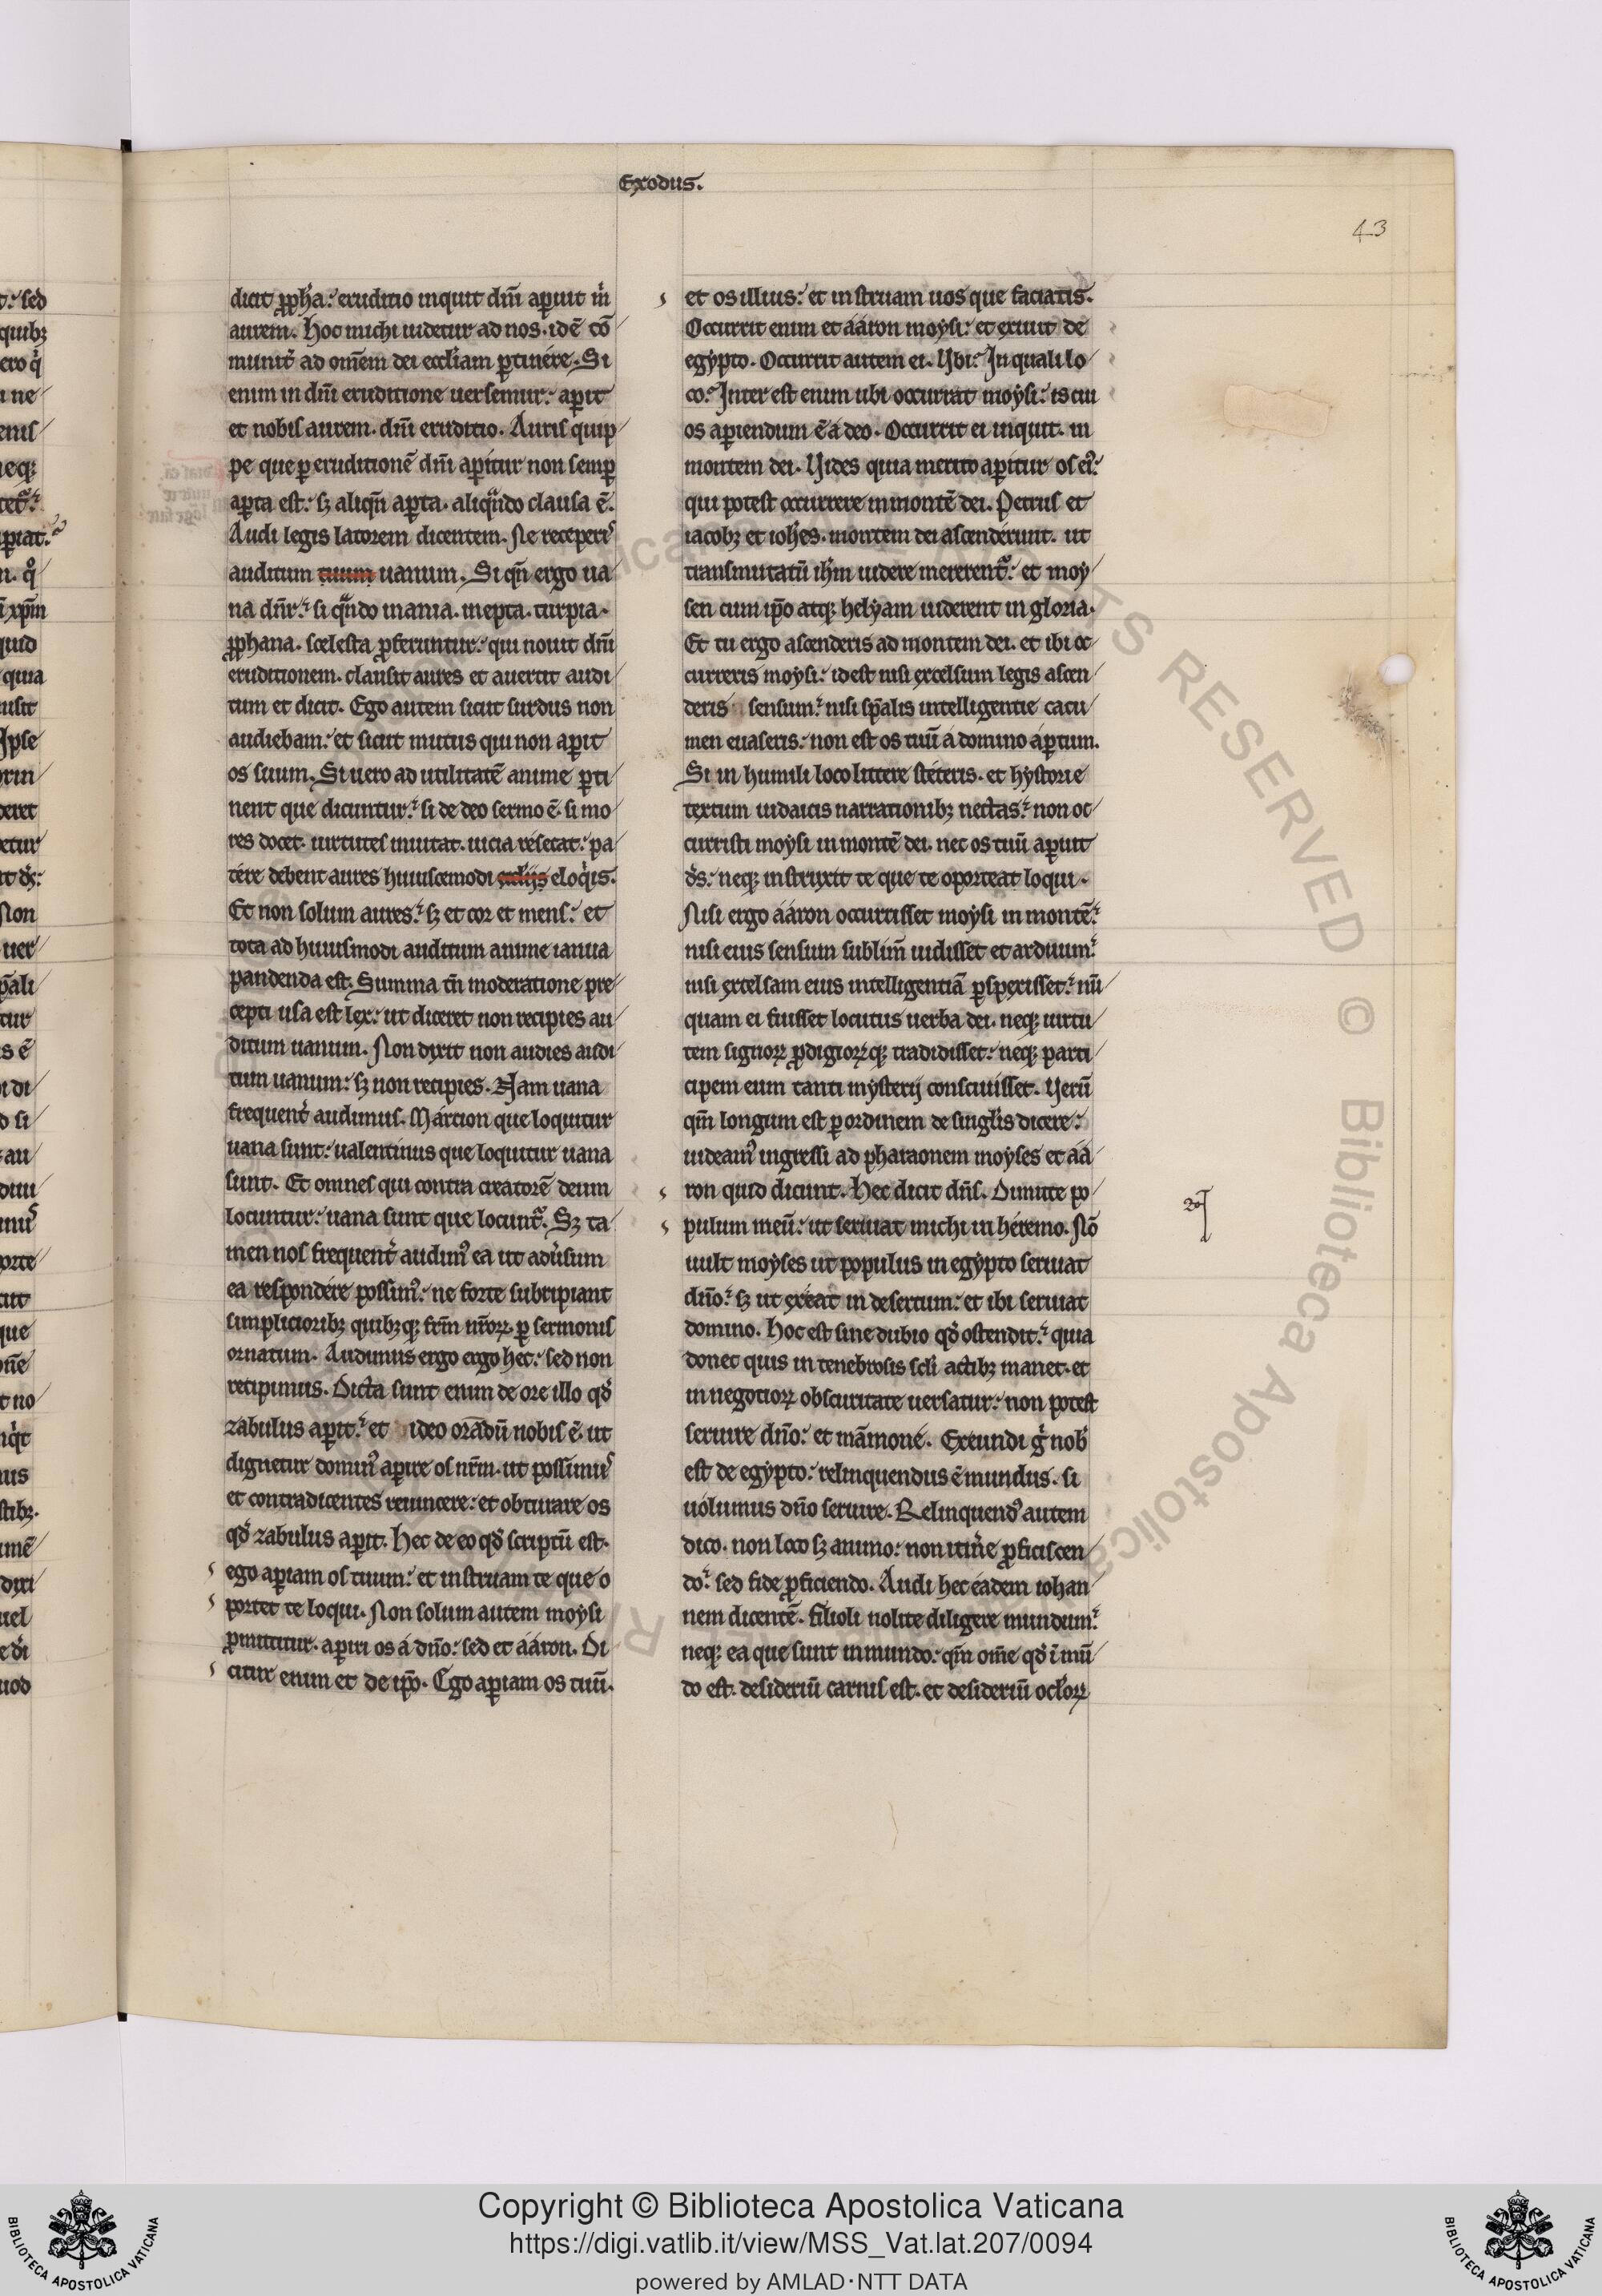 Exodus.
43
dicit ꝓph̄a: eruditio inquit dn̄i aperuit m̓
aurem. Hoc michi uidetur ad nos. idē cō
munit̓ ad om̄em dei eccl̓iam ꝑtinére. Si
enim in dn̄i eruditione uersemur: apit
et nobis aurem. dn̄i eruditio. Auris quip
pe que ꝑ eruditionē dn̄i apitur non semꝑ
aꝑta est: sꝫ aliqn̄ aꝑta. aliqͣndo clausa ē.
Audi legis latorem dicentem. Ne receperis
auditum tuum uanum. Si qn̄ ergo ua
na dn̄r: si qͣndo inania. inepta. turpia.
ꝓphana. scelesta ꝓferuntur: qui nouit dn̄i
eruditionem. clausit aures et auertit audi
tum et dicit. Ego autem sicut surdus non
audiebam: et sicut mutus qui non aꝑit
os suum. Si uero ad utilitatē anime ꝑti
nent que dicuntur: si de deo sermo ē. si mo
res docet. uirtutes inuitat. uicia résecat: pa
tére debent aures huiuscemodi eloq̓is.
Et non solum aures: sꝫ et cor et mens: et
tota ad huiusmodi auditum anime ianua
pandenda est. Summa tn̄ moderatione pre
cepti usa est lex: ut diceret non recipies au
ditum uanum. Non dixit non audies audi
tum uanum: sꝫ non recipies. Nam uana
frequent̓ audimus. Márcion que loquitur
uana sunt: ualentinus que loquitur uana
sunt. Et omnes qui contra creatorē deum
locuntur: uana sunt que locunt᷑. Sꝫ ta
men nos frequent̓ audimꝰ ea ut adu̓sum
ea respondére possimꝰ: ne forte subripiant
simplicioribꝫ quibꝫqꝫ frm̄ nr̄oꝝ. ꝑ sermonis
ornatum. Audimus ergo ergo hec: sed non
recipimus. Dicta sunt enim de ore illo qd̓
zábulus aꝑit: et ideo orādū nobis ē. ut
dignetur dominꝰ aꝑire os nr̄m. ut possimus
et contradicentes reuincere: et obturare os
qd̓ zabulus aꝑit. Hec de eo qd̓ scriptū est.
ego aꝑiam os tuum: et instruam te que o
portet te loqui. Non solum autem moysi
ꝓmittitur. aꝑiri os á dn̄o: sed et ááron. Di
citur enim et de ip̄o. Ego aꝑiam os tuū.
et os illius: et instruam uos que faciatis.
Occurrit enim et ááron moysi: et exiuit de
egypto. Occurrit autem ei. Vbi? In quali lo
co? Inter est enim ubi occurrat moysi: is cui
os aꝑiendum ē á deo. Occurrit ei inquit. in
montem dei. Vides quia merito aꝑitur os eiꝰ:
qui potest occurrere in montē dei. Petrus et
iacobꝫ et ioh̓es. montem dei ascendérunt. ut
transmutatū ih̄m uidere mererent᷑: et moy
sen cum ip̄o atqꝫ helyam uiderent in gloria.
Et tu ergo ascenderis ad montem dei. et ibi oc
curreris moysi: id est nisi excelsum legis ascen
deris sensum: nisi sp̄alis intelligentie cacu
men euaseris: non est os tuū á domino aꝑtum.
Si in humili loco littere stéteris. et hystorie
textum iudaicis narrationibꝫ nectas: non oc
curristi moysi in montē dei. nec os tuū aꝑuit
d̓s: neqꝫ instruxit te que te oporteat loqui.
Nisi ergo ááron occurrisset moysi in montē:
nisi eius sensum sublim̄ uidisset et arduum:
nisi excelsam eius intelligentiā ꝑspexisset: nū
quam ei fuisset locutus uerba dei. neqꝫ uirtu
tem signoꝝ ꝓdigioꝝqꝫ tradidisset: neqꝫ parti
cipem eum tanti mysterij consciuisset. Verū
qm̄ longum est ꝑ ordinem de singl̓is dicere:
uideamꝰ ingressi ad pharaonem moyses et áá
ron quid dicunt. Hec dicit dn̄s. Dimitte po
pulum meū: ut seruiat michi in héremo. Nō
uult moyses ut populus in egypto seruiat
dn̄o: sꝫ ut exéat in desertum: et ibi seruiat
domino. Hoc est sine dubio qd̓ ostendit: quia
donec quis in tenebrosis scl̓i actibꝫ manet. et
in negotioꝝ obscuritate uersatur: non potest
seruire dn̄o: et mām̄oné. Exeundi g̓ nob̓
est de egypto: relinquendus ē mundus. si
uólumus dn̄o seruire. Relinquendꝰ autem
dico. non loco sꝫ animo: non itin̓e ꝓficiscen
do: sed fide ꝓficiendo. Audi hec éadem iohan
nem dicentē. filioli nolite diligere mundum:
neqꝫ ea que sunt in mundo: qm̄ om̄e qd̓ ī mū
do est. desideriū carnis est. et desideriū ocl̓oꝝ
Copyright © Biblioteca Apostolica Vaticana
https://digi.vatlib.it/view/MSS_Vat.lat.207/0094
powered by AMLAD·NTT DATA